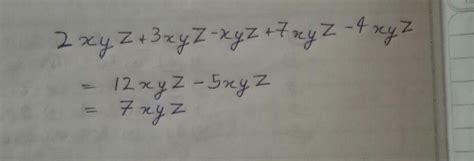 2xyz+3xyz-xyz+7xyz-4xyz
= 12xyz-5xyz
= 7xyz